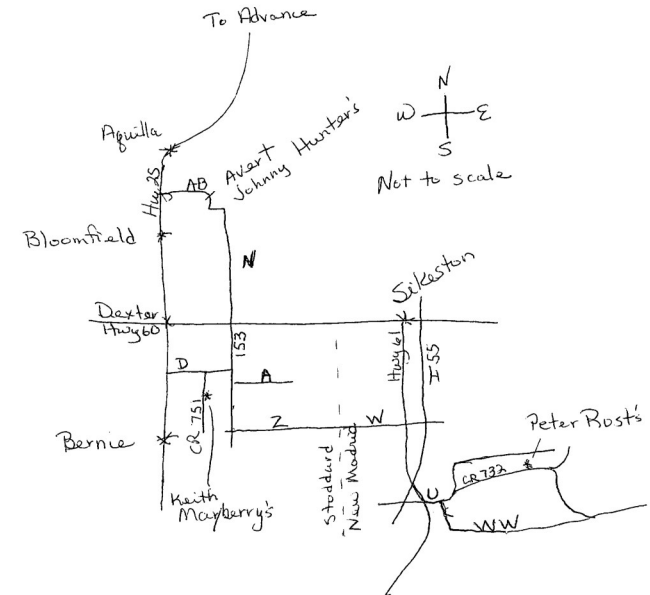 To Advance
N
W E
S
Not to scale
Aquilla
Avert
Johnny Hunter's
Hwy 25
AB
Bloomfield
N
Sikeston
Dexter
Hwy 60
153
Hwy 61
I 55
D
A
CR 751
Z
W
Bernie
Peter Rost's
CR 732
Keith
Mayberry's
Stoddard
New Madrid
U
WW